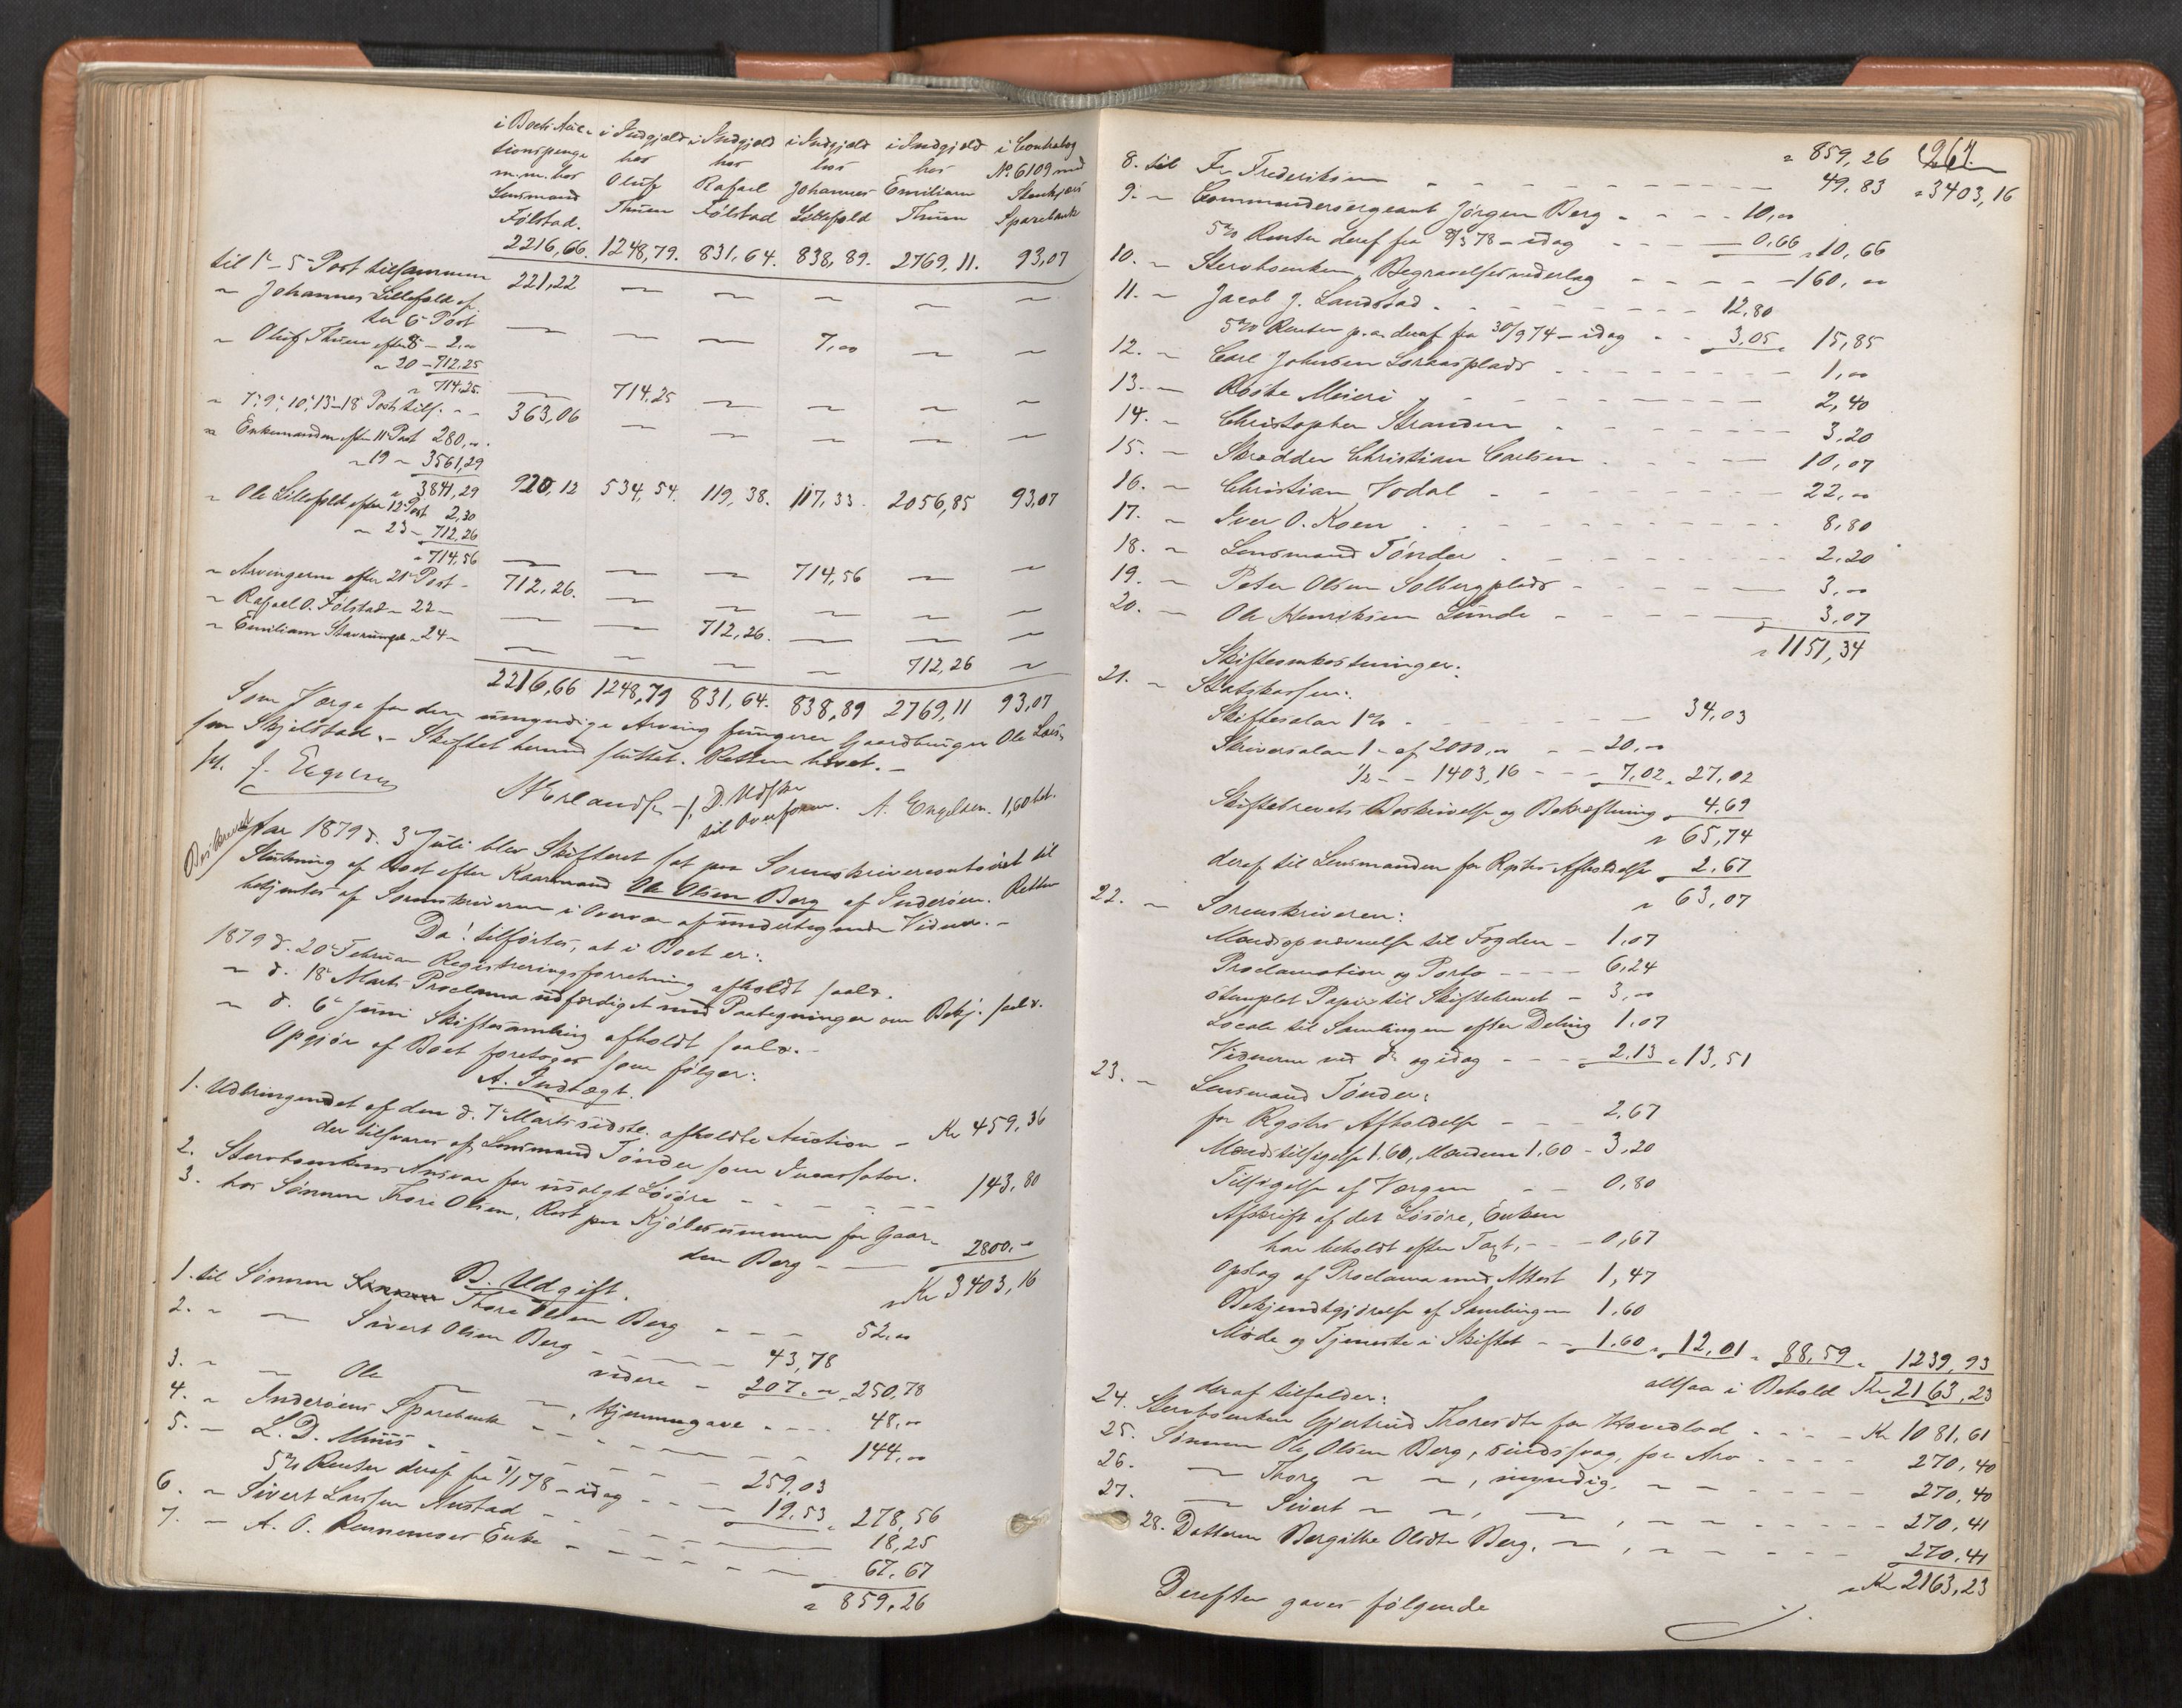 i Boets Auc- i Indgjæld i Indgjæld i Indgjæld i Indgjæld i Contrabog
tionspenge hos hos hos hos No. 6109 med
m.m. hos Oluf Rafael Johannes Emilian Stenkjærs
Lensmand Thuen Følstad Lillefold Thuen Sparebank
Følstad.
2216,66. 1248,79. 831,64. 838,89. 2769,11. 93,07
til 1ste - 5te Post tilsammen 221,22 — — — — —
" Johannes Lillefold ef-
ter 6te Post — — — 7,00 — —
" Oluf Thuen efter 8 — 2,00
" 20 — 712,25
" 714,25. — 714,25 — — — —
" 7de, 9de, 10de, 13-18 Post tils. - - 363,06 — — — — —
" Enkemanden efter 11te Post 280,00.
" 19 — 3561,29
" 3841,29 920,12 534,54. 119,38. 117,33. 2056,85 93,07
" Ole Lillefold efter 12te Post 2,30
— 23 — 712,26
" 714,56 — — — 714,56 — —
" Arvingerne efter 21de Post - 712,26. — — — — —
" Rafael O. Følstad — 22 — — — 712,26. — — —
" Emilian — 24 — — — — — 712,26 —
2216,66 1248,79 831,64. 838,89 2769,11 93,07
Som Værge for den umyndige Arving fungerer Gaardbruger Ole Lars-
sen Skjelstad. – Skiftet hermed sluttet. Retten hævet. –
J. A. Engelsen. 1,60 bet.
til Overform.
Beskrevet
Aar 1879 d. 3die Juli blev Skifteret sat paa Sorenskrivercontoiret til
Slutning af Boet efter Kaarmand Ole Olsen Berg af Inderøen. Retten
betjentes af Sorenskriveren i Overvær af undertegnede Vidner. –
Da! tilførtes, at i Boet er:
1879 d. 20de Februar Registreringsforretning afholdt saal.
— d. 18de Marts Proclama udfærdiget med Paategninger om Bekj. saal.
— d. 6te Juni Skiftesamling afholdt saal. –
Opgjør af Boet foretoges som følger:
A. Indtægt.
1. Udbringendet af den d. 7de Marts sidstl. afholdte Auction – Kr 459,36
der tilsvares af Lensmand Tønder som Incassator.
2. Stervboenkens Ansvar for usolgt Løsøre - - - - 143,80
3. hos Sønnen Thore Olsen, Rest paa Kjøbesummen for Gaar-
den Berg - — 2800,00
" Kr 3403,16
B. Udgift.
1. til Sønnen Thore Olsen Berg - - - 52,00
2. " — Sivert Olsen Berg - — — 43,78
videre - 207,00 " 250,78
3. " — Ole — — , Hjemmegave - - - - 48,00
4. " Inderøens Sparebank - - - — — - 144,00
5. — L. D. Muus - - - - - - 259,03
5% Renter deraf fra 1/1 78 - idag - - - 19,53 " 278,56
6. " Sivert Larssen Austad - - - - - 18,25
7. — A. O. Rennemoes Enke - - - - - - 67,67
" 859,26
267.
" 859,26
8. til Fr. Frederiksen - - - - - - - - - 49,83 " 3403,16
9. — Commandersergeant Jørgen Berg - - - - 10,00
5% Renter deraf fra 78 - idag - - - 0,66 " 10,66
10. — Stervboenken, Begravelsesvederlag - - - - 160,00
11. — Jacob J. Landstad - - - - - - 12,80
5% Renter p.a. deraf fra 30/9 74 - idag - - 3,05 " 15,85
12. — Carl Johnsen - - - - - - - 1,00
13. — Røste Meieri - - - - - - - - 2,40
14. — Christopher Stranden - - - - - - 3,20
15. — Skrædder Christian Carlsen - - - 10,07
16. — Christian Vodal - - - - - - 22,00
17. — Iver O. Koen - - - - - - - 8,80
18. — Lensmand Tønder - - - - - - 2,20
19. — Peter Olsen Solbergplads - - - - - 3,00
20. — Ole Henriksen Lunde - - - - - 3,07
" 1151,34
Skifteomkostninger:
21. — Statskassen:
Skiftesalær 1% - - - - - 34,03
Skriversalær 1 - af 2000,00 - - 20,00
1/2 - - 1403,16 - - - 7,02 " 27,02
Skiftebrevets Beskrivelse og Bekræftning 4,69
" 65,74
deraf til Lensmanden for Rgstrs Afholdelse 2,67
" 63,07
22. — Sorenskriveren:
Mændsopnævnelse til Fogden - 1,07
Proclamation og Porto - - - - 6,24
stemplet Papir til Skiftebrevet - 3,00
Locale til Samlingen efter Deling 1,07
Vidnerne ved do og idag - - - 2,13 " 13,51
23. — Lensmand Tønder:
for Rgstrs Afholdelse - - - 2,67
Mændstilsigelse 1.60, Mændene 1.60 - 3,20
Tilsigelse af Værgen - - 0,80
Afskrift af det Løsøre, Enken
har beholdt efter Taxt, - - - 0,67
Opslag af Proclama med Attest 1,47
Bekjendtgjørelse af Samlingen 1,60
Møde og Tjeneste i Skiftet - - 1,60 " 12,01 " 88,59 " 1239,93
altsaa i Behold Kr 2163,23
deraf tilfalder:
24. Stervboenken Gjertrud Thoresdtr for Hovedlod - - - - Kr 1081,61
25. Sønnen Ole Olsen Berg, sindssvag, for Arv - - - - 270,40
26. — Thore — — , myndig, — - - - - 270,40
27. — Sivert — — , — , — - - - - - 270,41
28. Datteren Bergithe Olsdtr Berg, — , — - - - 270,41
" Kr 2163,23
Derefter gaves følgende